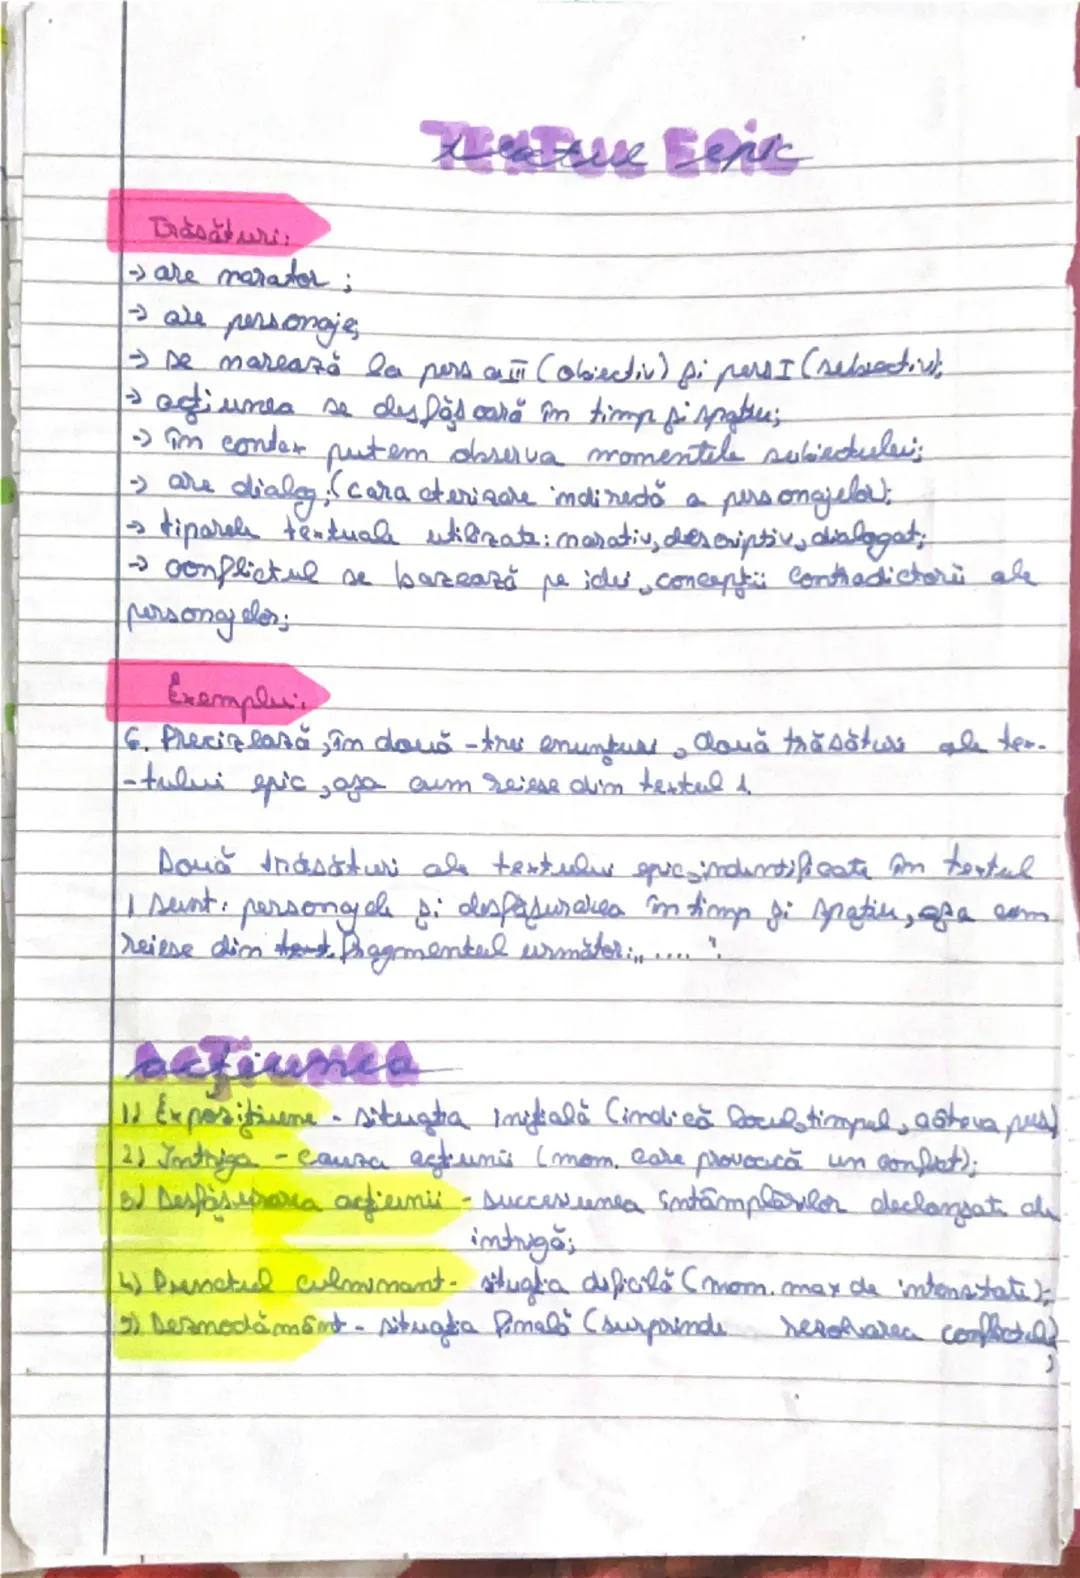 Textul Epic
Trăsături:
→ are narator;
→ are personaje;
→ se narează la pers a III (obiectiv) și pers I (subiectiv);
→ acțiunea se desfășoară în timp și spațiu;
→ în conter putem observa momentele subiectului;
→ are dialog; (caracterizare indirectă a personajelor);
→ tiparele textuale utilizate: narativ, descriptiv, dialogat;
→ conflictul se bazează pe idei, concepții contradictorii ale
personajelor;
Exemplu:
6. Precizează, în două-trei enunțuri, două trăsături ale tex-
-tului epic, așa cum reiese din textul 1.
Două trăsături ale textului epic, indentificate în textul
1 sunt: personajele și desfășurarea în timp și spațiu, așa cum
reiese din fragmentul următor: „....".
acțiunea
1) Expozițiune - situația inițială (indică locul, timpul, câteva pers)
2) Intriga - cauza acțiunii (mom. care provoacă un conflict);
3) Desfășurarea acțiunii - succesiunea întâmplărilor declanșate de
intrigă;
4) Punctul culminant - situația dificilă (mom. max de intensitate);
5) Deznodământ - situația finală (surprinde rezolvarea conflictului)
;